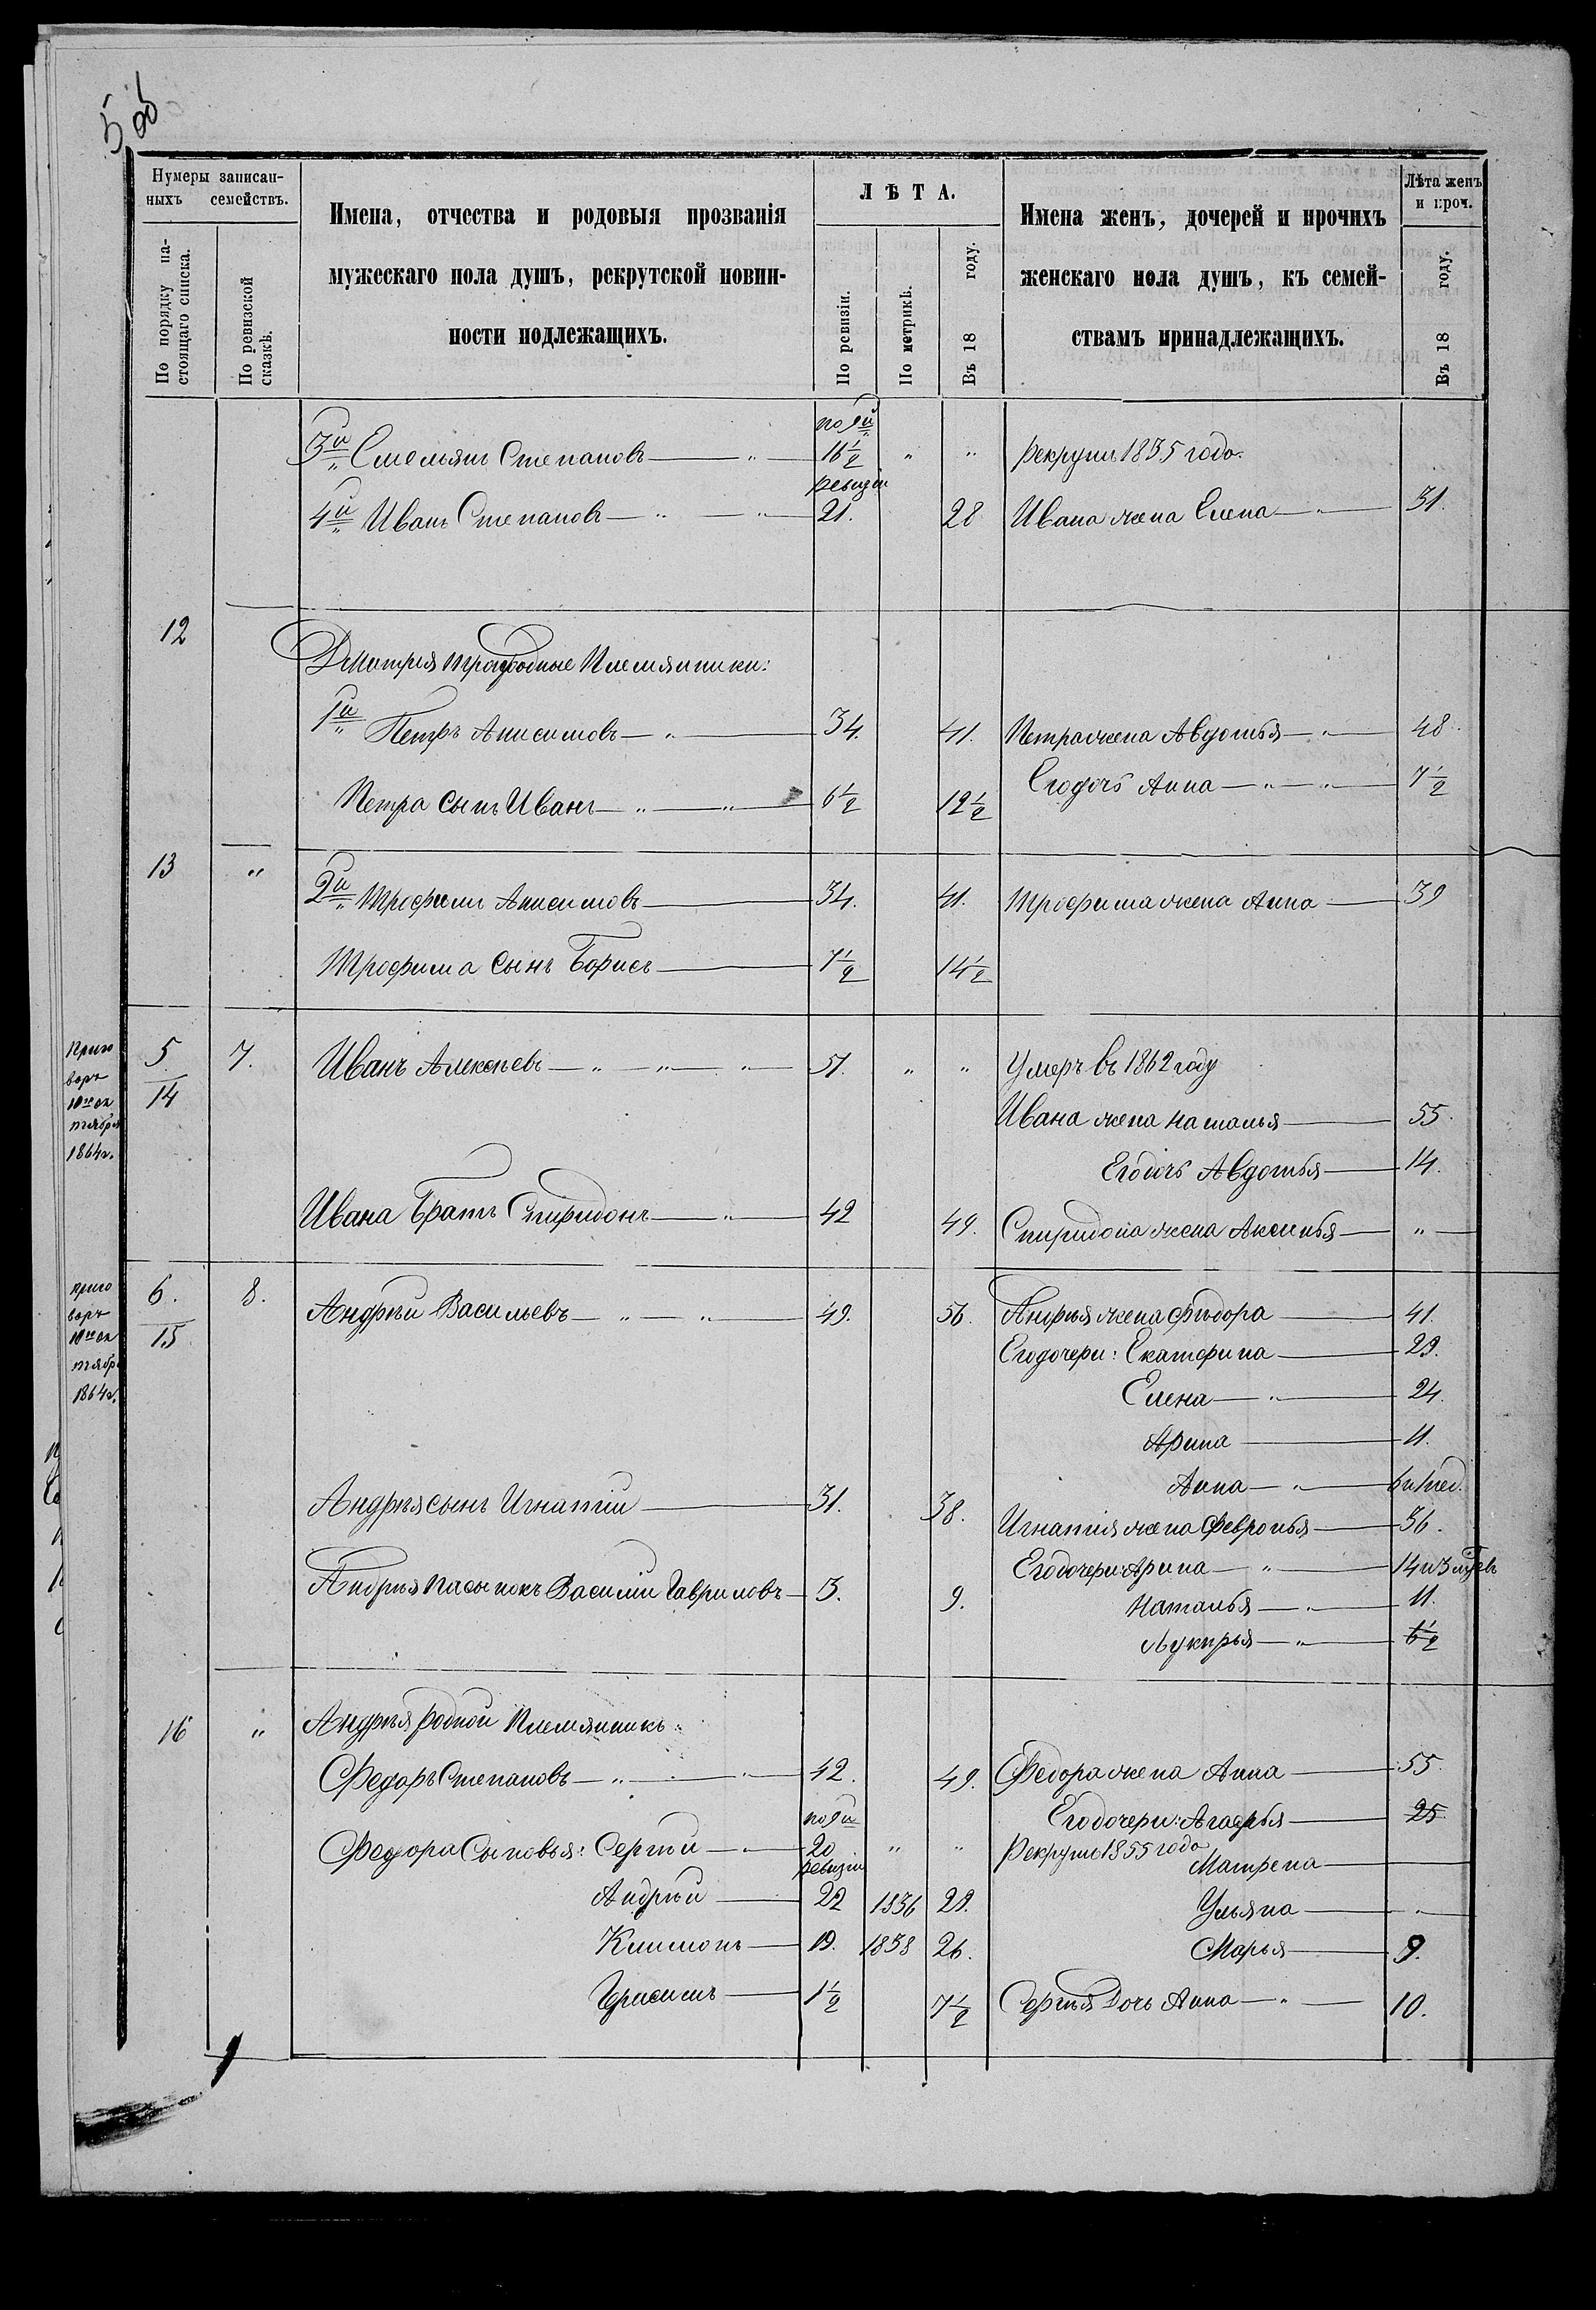 5 об
Нумеры записан-
ныхъ семействъ.
По порядку на-
стоящаго списка.
По ревизской
сказкѣ.
Имена, отчества и родовыя прозванія
мужескаго пола душъ, рекрутской повин-
ности подлежащихъ.
ЛѢТА.
По ревизіи.
По метрикѣ.
Въ 18 году.
Имена женъ, дочерей и прочихъ
женскаго пола душъ, къ семей-
ствамъ принадлежащихъ.
Лѣта женъ
и проч.
Въ 18 году.
3й Емельянъ Степановъ — " — по 9й 16½ ревизіи " " рекрутъ 1855 года.
4й Иванъ Степановъ — " — " — 21. 28 Ивана жена Елена — " — 31.
12
Дмитрія троюродные Племянники:
1й Петръ Анисимовъ — " — 34. 41. Петра жена Авдотья — " — 48.
Его дочь Анна — " — " — 7½
Петра сынъ Иванъ — " — " — 6½ 12½
13 " 2й Трофимъ Анисимовъ — 34. 41. Трофима жена Анна — 39
Трофима сынъ Борисъ — 7½ 14½
Приго
воръ
10го ок
тября
1864г.
5 7. Иванъ Алексѣевъ — " — " — " — 51. " " Умеръ въ 1862 году
14 Ивана жена Наталья — 55.
Его дочь Авдотья — 14.
Ивана братъ Спиридонъ — " — 42 49. Спиридона жена Аксинья — " —
приго
воръ
10го ок
тября
1864г.
6. 8. Андрѣй Васильевъ — " — " — 49. 56. Андрѣя жена Фѣдора — 41.
15 Его дочери: Екатерина — 29.
Елена — " — 24.
Арина — 11.
Анна — " —
Андрѣя сынъ Игнатій — 31. 38. Игнатія жена Февронья — 36.
Его дочери: Арина — " — 14
Андрѣя пасынокъ Василій Гавриловъ — 3. 9. Наталья — " — 11.
Лукирья — " — 6½
16 " Андрѣя родной Племянникъ:
Федоръ Степановъ — " — " — 42. 49. Федора жена Анна — 55.
Его дочери: Агафья — 25.
Федора Сыновья: Сергѣй — " — по 9й 20 ревизіи " " Рекрутъ 1855 года
Матрена —
Андрѣй — 22 1836 29. Ульяна — " —
Климонъ — 19. 1838 26. Марья — 9.
Герасимъ — 1½ 7½ Сергѣя дочь Анна — " — 10.